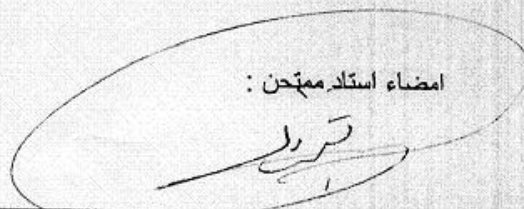 امضاء استاد ممتحن :